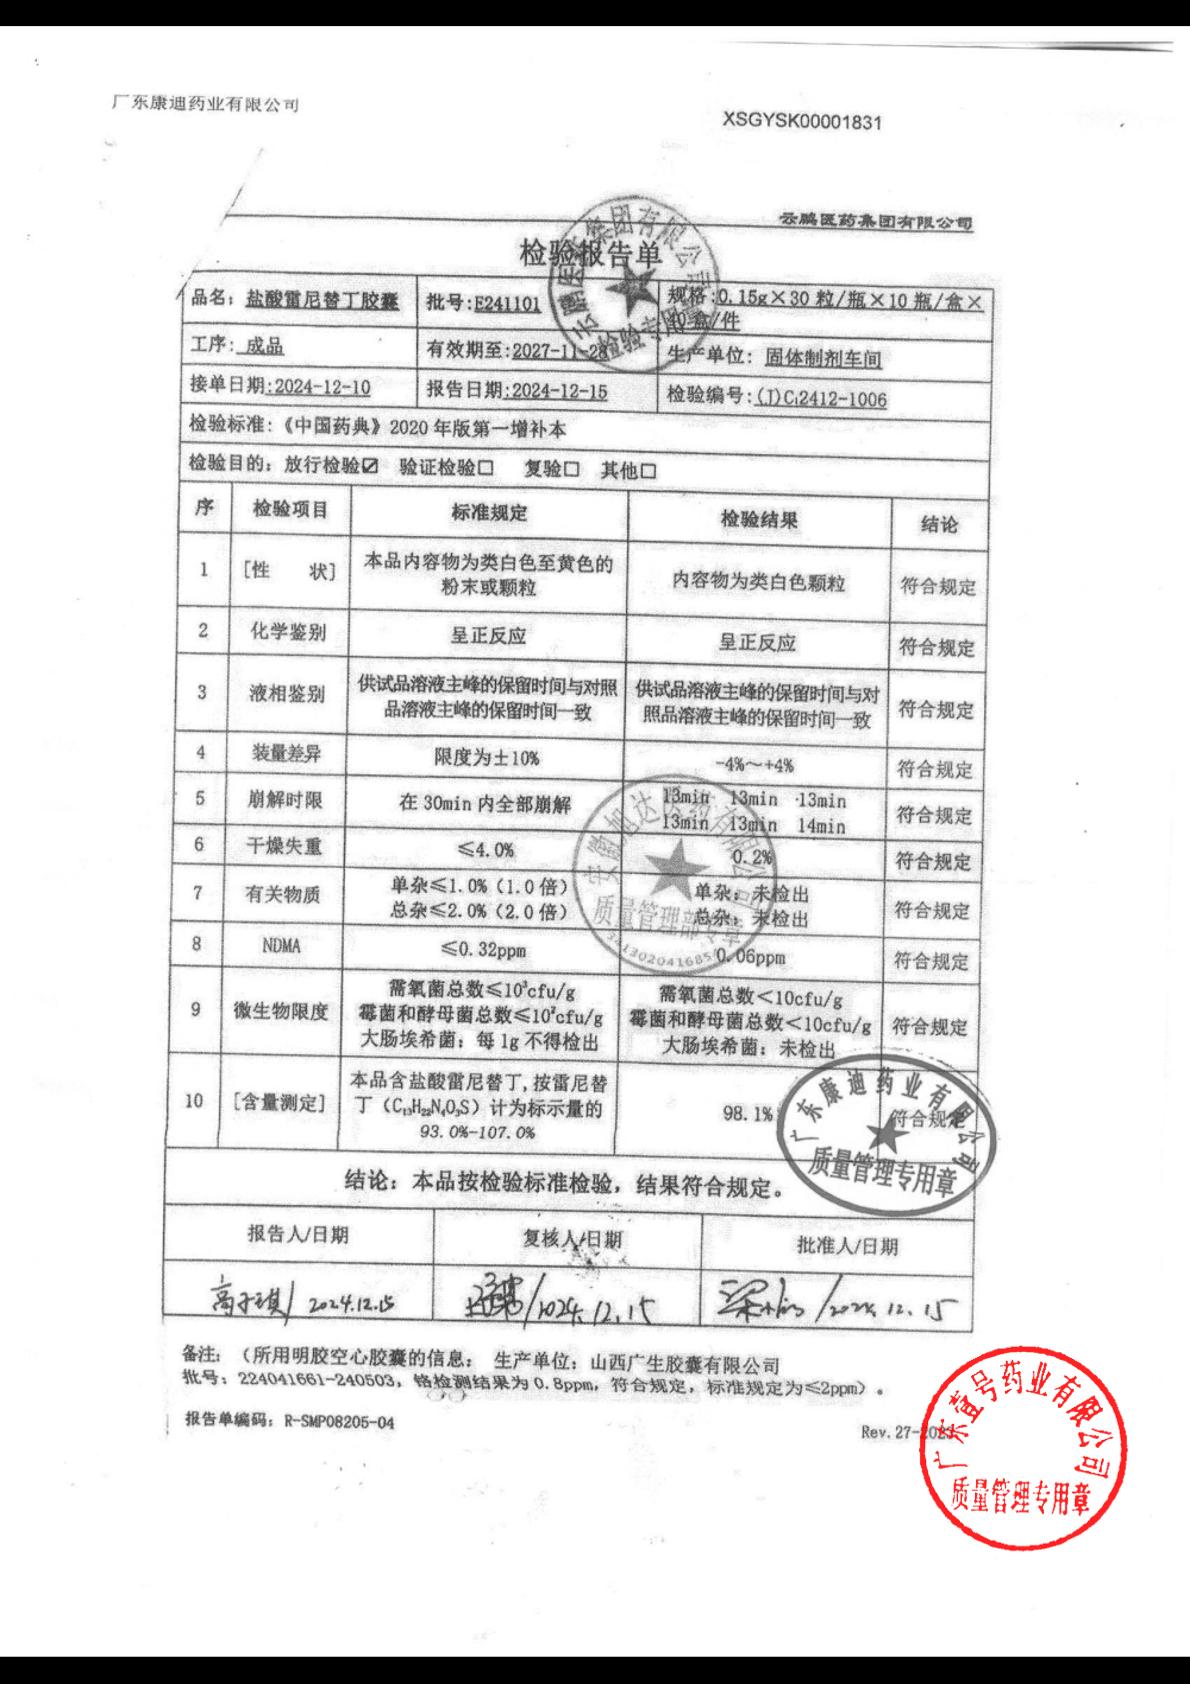 广东康迪药业有限公司
XSGYSK00001831
云鹏医药集团有限公司
检验报告单
品名：盐酸雷尼替丁胶囊 批号:E241101 规格:0.15g×30粒/瓶×10瓶/盒×
40盒/件
工序：成品 有效期至:2027-11-28 生产单位：固体制剂车间
接单日期:2024-12-10 报告日期:2024-12-15 检验编号:(J)C₁2412-1006
检验标准：《中国药典》2020年版第一增补本
检验目的：放行检验☑ 验证检验☐ 复验☐ 其他☐
序 检验项目 标准规定 检验结果 结论
1 [性 状] 本品内容物为类白色至黄色的
粉末或颗粒 内容物为类白色颗粒 符合规定
2 化学鉴别 呈正反应 呈正反应 符合规定
3 液相鉴别 供试品溶液主峰的保留时间与对照
品溶液主峰的保留时间一致 供试品溶液主峰的保留时间与对
照品溶液主峰的保留时间一致 符合规定
4 装量差异 限度为±10% -4%～+4% 符合规定
5 崩解时限 在30min内全部崩解 13min 13min 13min
13min 13min 14min 符合规定
6 干燥失重 ≤4.0% 0.2% 符合规定
7 有关物质 单杂≤1.0%（1.0倍）
总杂≤2.0%（2.0倍） 单杂：未检出
总杂：未检出 符合规定
8 NDMA ≤0.32ppm 0.06ppm 符合规定
9 微生物限度 需氧菌总数≤10³cfu/g
霉菌和酵母菌总数≤10²cfu/g
大肠埃希菌：每1g不得检出 需氧菌总数<10cfu/g
霉菌和酵母菌总数<10cfu/g
大肠埃希菌：未检出 符合规定
10 [含量测定] 本品含盐酸雷尼替丁,按雷尼替
丁（C₁₃H₂₂N₄O₃S）计为标示量的
93.0%-107.0% 98.1% 符合规定
结论：本品按检验标准检验，结果符合规定。
报告人/日期 复核人/日期 批准人/日期
高子琪/ 2024.12.15 /2024.12.15 /2024.12.15
备注：（所用明胶空心胶囊的信息： 生产单位：山西广生胶囊有限公司
批号：224041661-240503，铬检测结果为0.8ppm，符合规定，标准规定为≤2ppm）。
报告单编码：R-SMP08205-04
Rev.27-2023
云鹏医药集团有限公司
检验专用章
安徽旭达医药有限公司
质量管理部专章
广东康迪药业有限公司
质量管理专用章
广东壹号药业有限公司
质量管理专用章